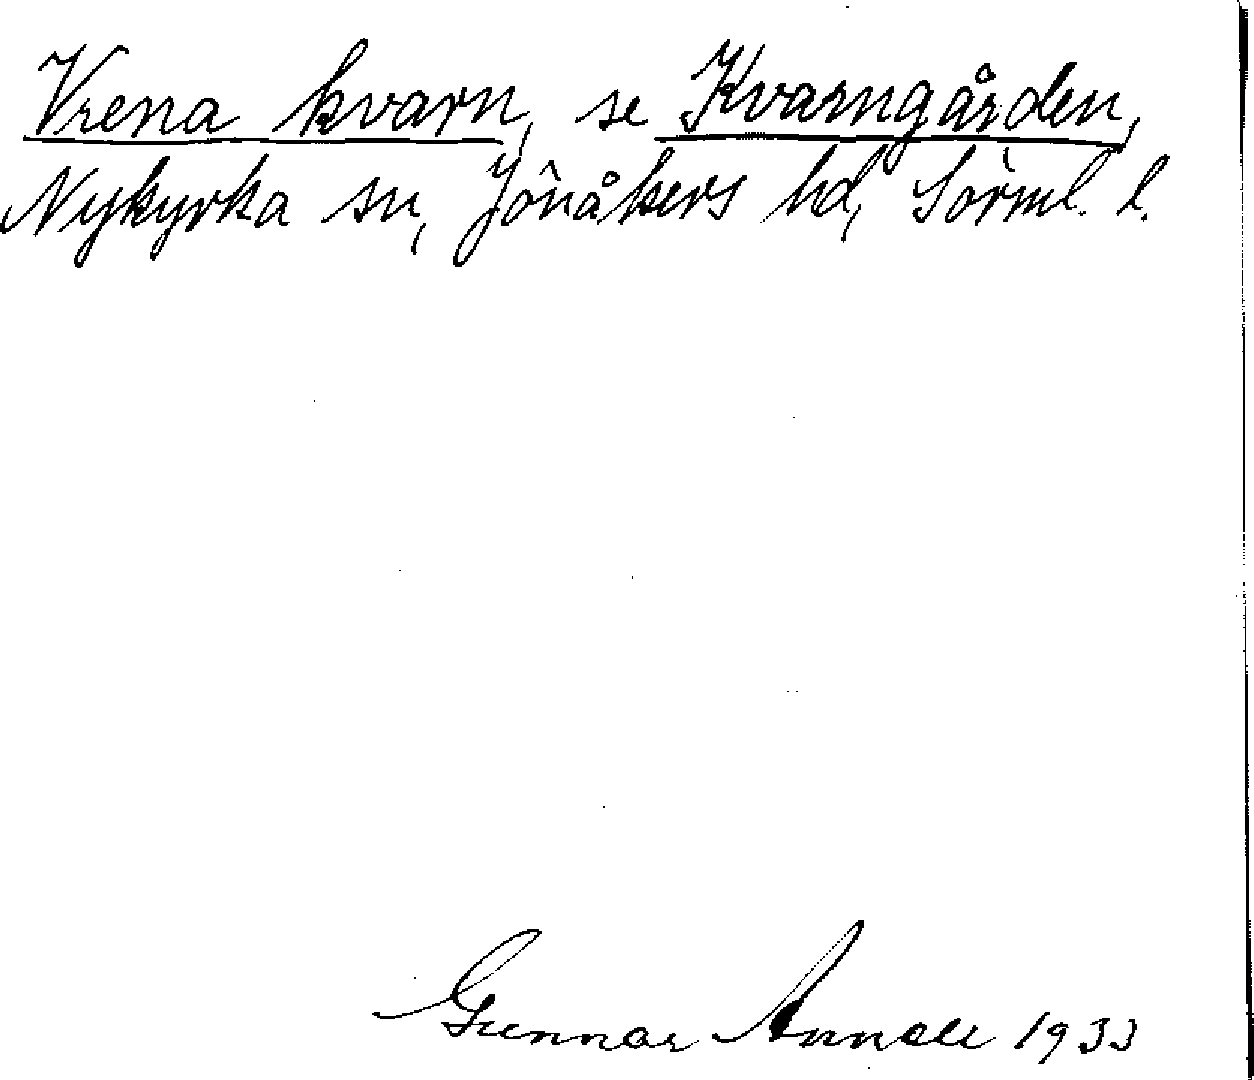 Vrena kvarn, se Kvarngården,
Nykyrka sn, Jönåkers hd, Sörml. l.
Gunnar Annell 1933